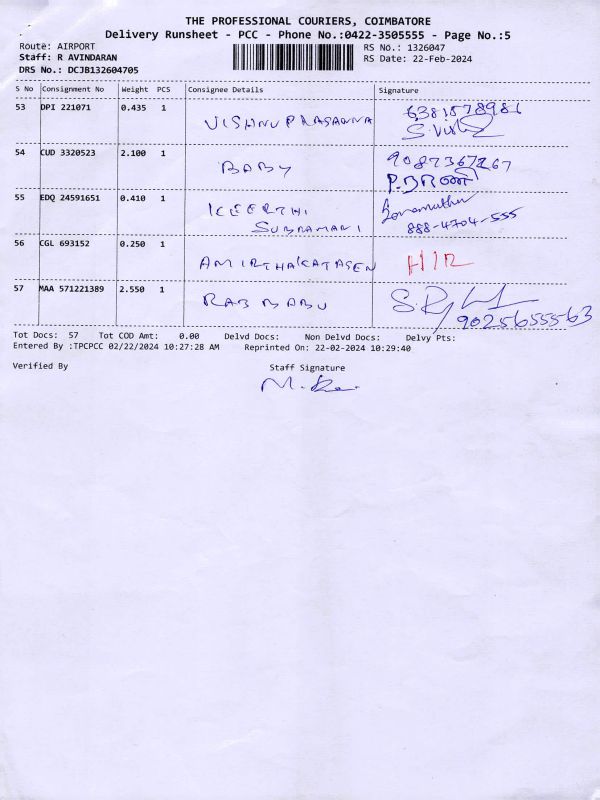 THE PROFESSIONAL COURIERS, COIMBATORE
Delivery Runsheet - PCC - Phone No.:0422-3505555 - Page No.:5
Route: AIRPORT RS No.: 1326047
Staff: R AVINDARAN RS Date: 22-Feb-2024
DRS No.: DCJB132604705
S No Consignment No Weight PCS Consignee Details Signature
53 DPI 221071 0.435 1 VISHNU PRASANNA 6381578981
54 CUD 3320523 2.100 1 BABY 9087367267
55 EDQ 24591651 0.410 1 KEERTHI
SUBRAMANI 888-4704-555
56 CGL 693152 0.250 1 H/R
57 MAA 571221389 2.550 1 BABU
9025655563
Tot Docs: 57 Tot COD Amt: 0.00 Delvd Docs: Non Delvd Docs: Delvy Pts:
Entered By :TPCPCC 02/22/2024 10:27:28 AM Reprinted On: 22-02-2024 10:29:40
Verified By Staff Signature